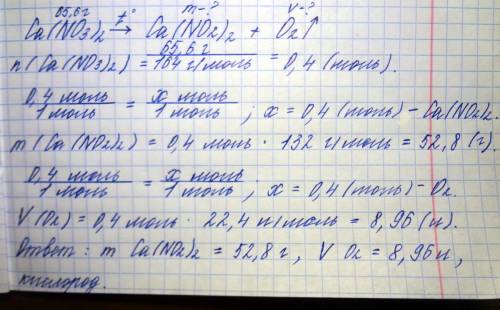 65,6 г m-? V-?
Ca(NO₃)₂ →t° Ca(NO₂)₂ + O₂↑
n(Ca(NO₃)₂) = 65,6 г / 164 г/моль = 0,4 (моль).
0,4 моль / 1 моль = x моль / 1 моль ; x = 0,4 (моль) – Ca(NO₂)₂.
m(Ca(NO₂)₂) = 0,4 моль · 132 г/моль = 52,8 (г).
0,4 моль / 1 моль = x моль / 1 моль ; x = 0,4 (моль) – O₂.
V(O₂) = 0,4 моль · 22,4 л/моль = 8,96 (л).
Ответ : m Ca(NO₂)₂ = 52,8 г , V O₂ = 8,96 л ,
кислород.